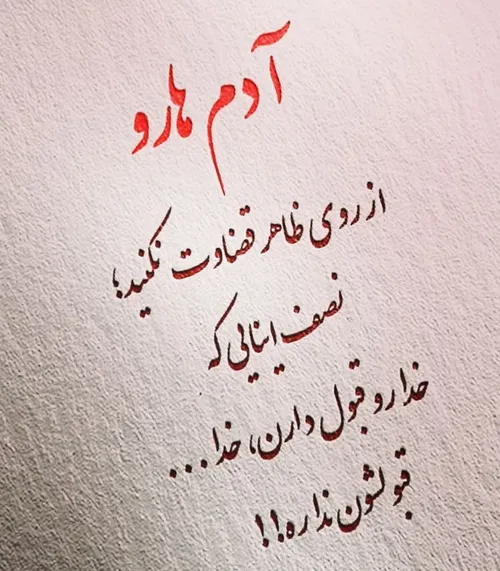 آدم هارو
از روی ظاهر قضاوت نکنید؛
نصف اینایی که
خدا رو قبول دارن، خدا...
قبولشون نداره!!